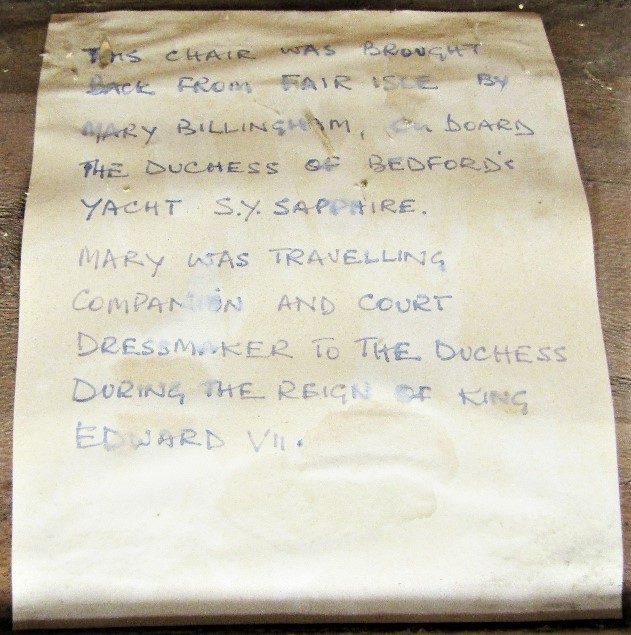 THIS CHAIR WAS BROUGHT
BACK FROM FAIR ISLE BY
MARY BILLINGHAM, ON BOARD
THE DUCHESS OF BEDFORD'S
YACHT S.Y. SAPPHIRE.
MARY WAS TRAVELLING
COMPANION AND COURT
DRESSMAKER TO THE DUCHESS
DURING THE REIGN OF KING
EDWARD VII.